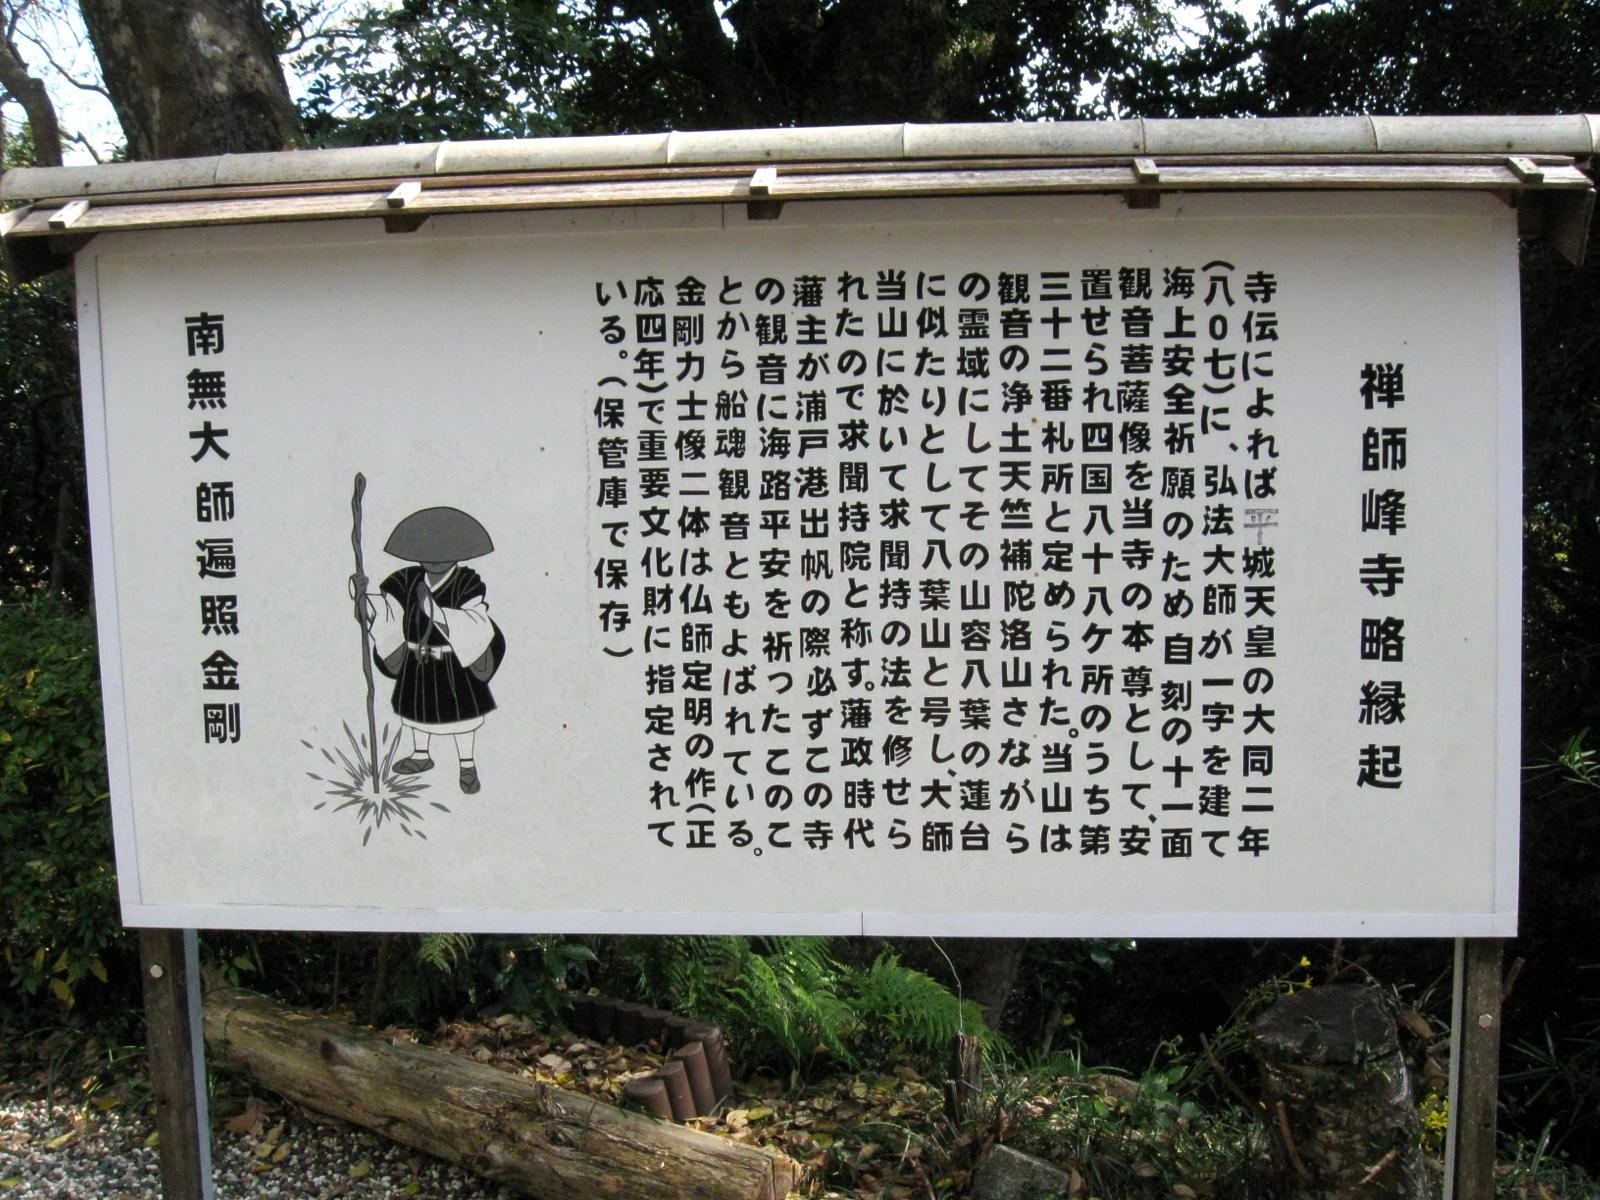 禅師峰寺略縁起
寺伝によれば平城天皇の大同二年
(八〇七)に、弘法大師が一字を建て
海上安全祈願のため自刻の十一面
観音菩薩像を当寺の本尊として、安
置せられ四国八十八ケ所のうち第
三十二番札所と定められた。当山は
観音の浄土天竺補陀洛山さながら
の霊域にしてその山容八葉の蓮台
に似たりとして八葉山と号し、大師
当山に於いて求聞持の法を修せら
れたので求聞持院と称す。藩政時代
藩主が浦戸港出帆の際必ずこの寺
の観音に海路平安を祈ったこのこ
とから船魂観音ともよばれている。
金剛力士像二体は仏師定明の作(正
応四年)で重要文化財に指定されて
いる。(保管庫で保存)
南無大師遍照金剛